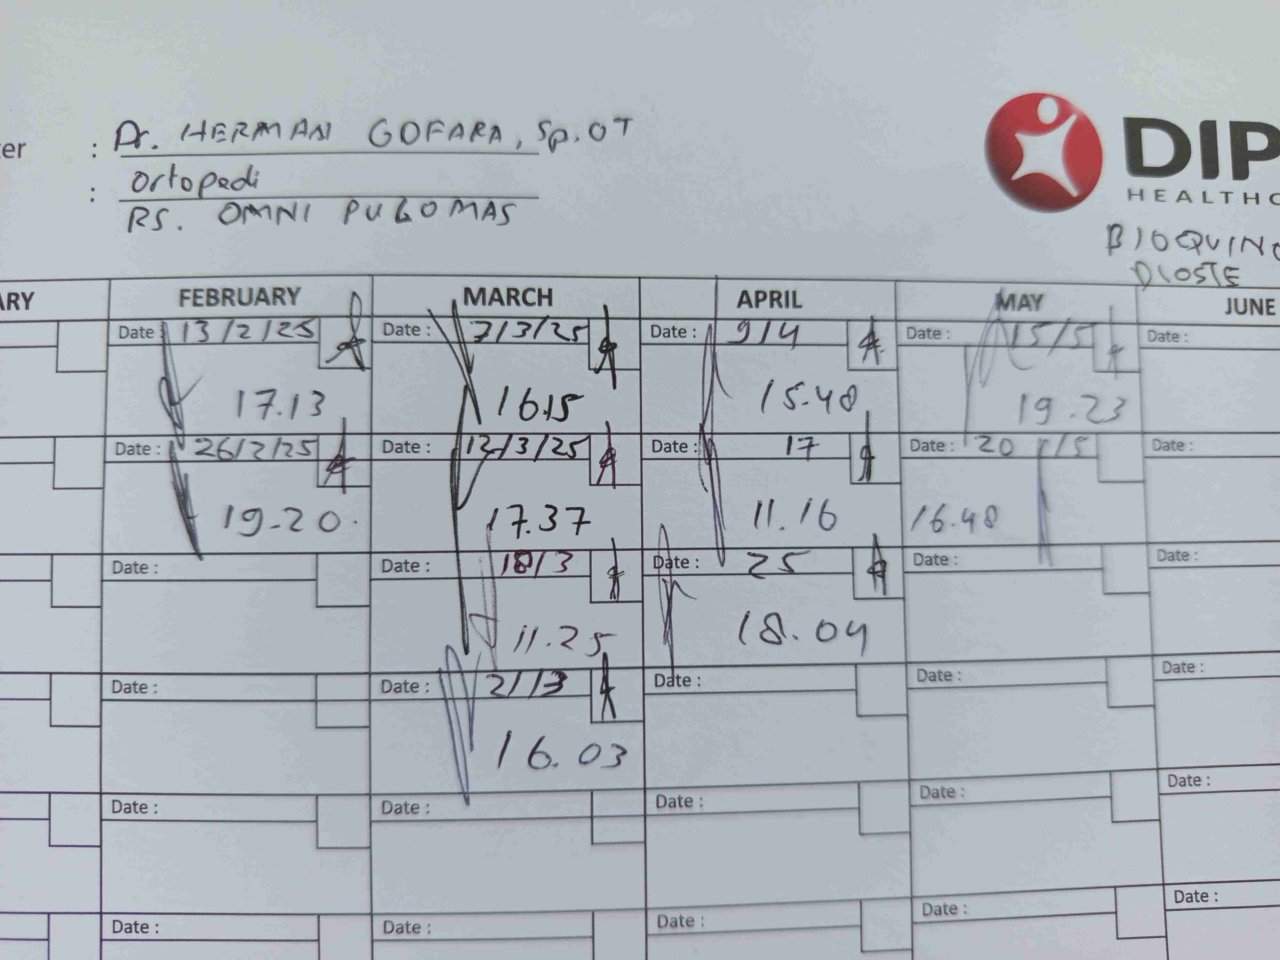 er : Dr. HERMAN GOFARA, Sp.OT
: Ortopedi
RS. OMNI PULOMAS
DIP
HEALTHC
BIOQUINO
DIOSTE
ARY FEBRUARY MARCH APRIL MAY JUNE
Date : 13/2/25 Date : 7/3/25 Date : 9/4 Date : 15/5 Date :
17.13 16.15 15.48 19.23
Date : 26/2/25 Date : 12/3/25 Date : 17 Date : 20/5 Date :
19.20 17.37 11.16 16.48
Date : Date : 18/3 Date : 25 Date : Date :
11.25 18.04
Date : Date : 21/3 Date : Date : Date :
16.03
Date : Date : Date : Date : Date :
Date : Date : Date : Date : Date :